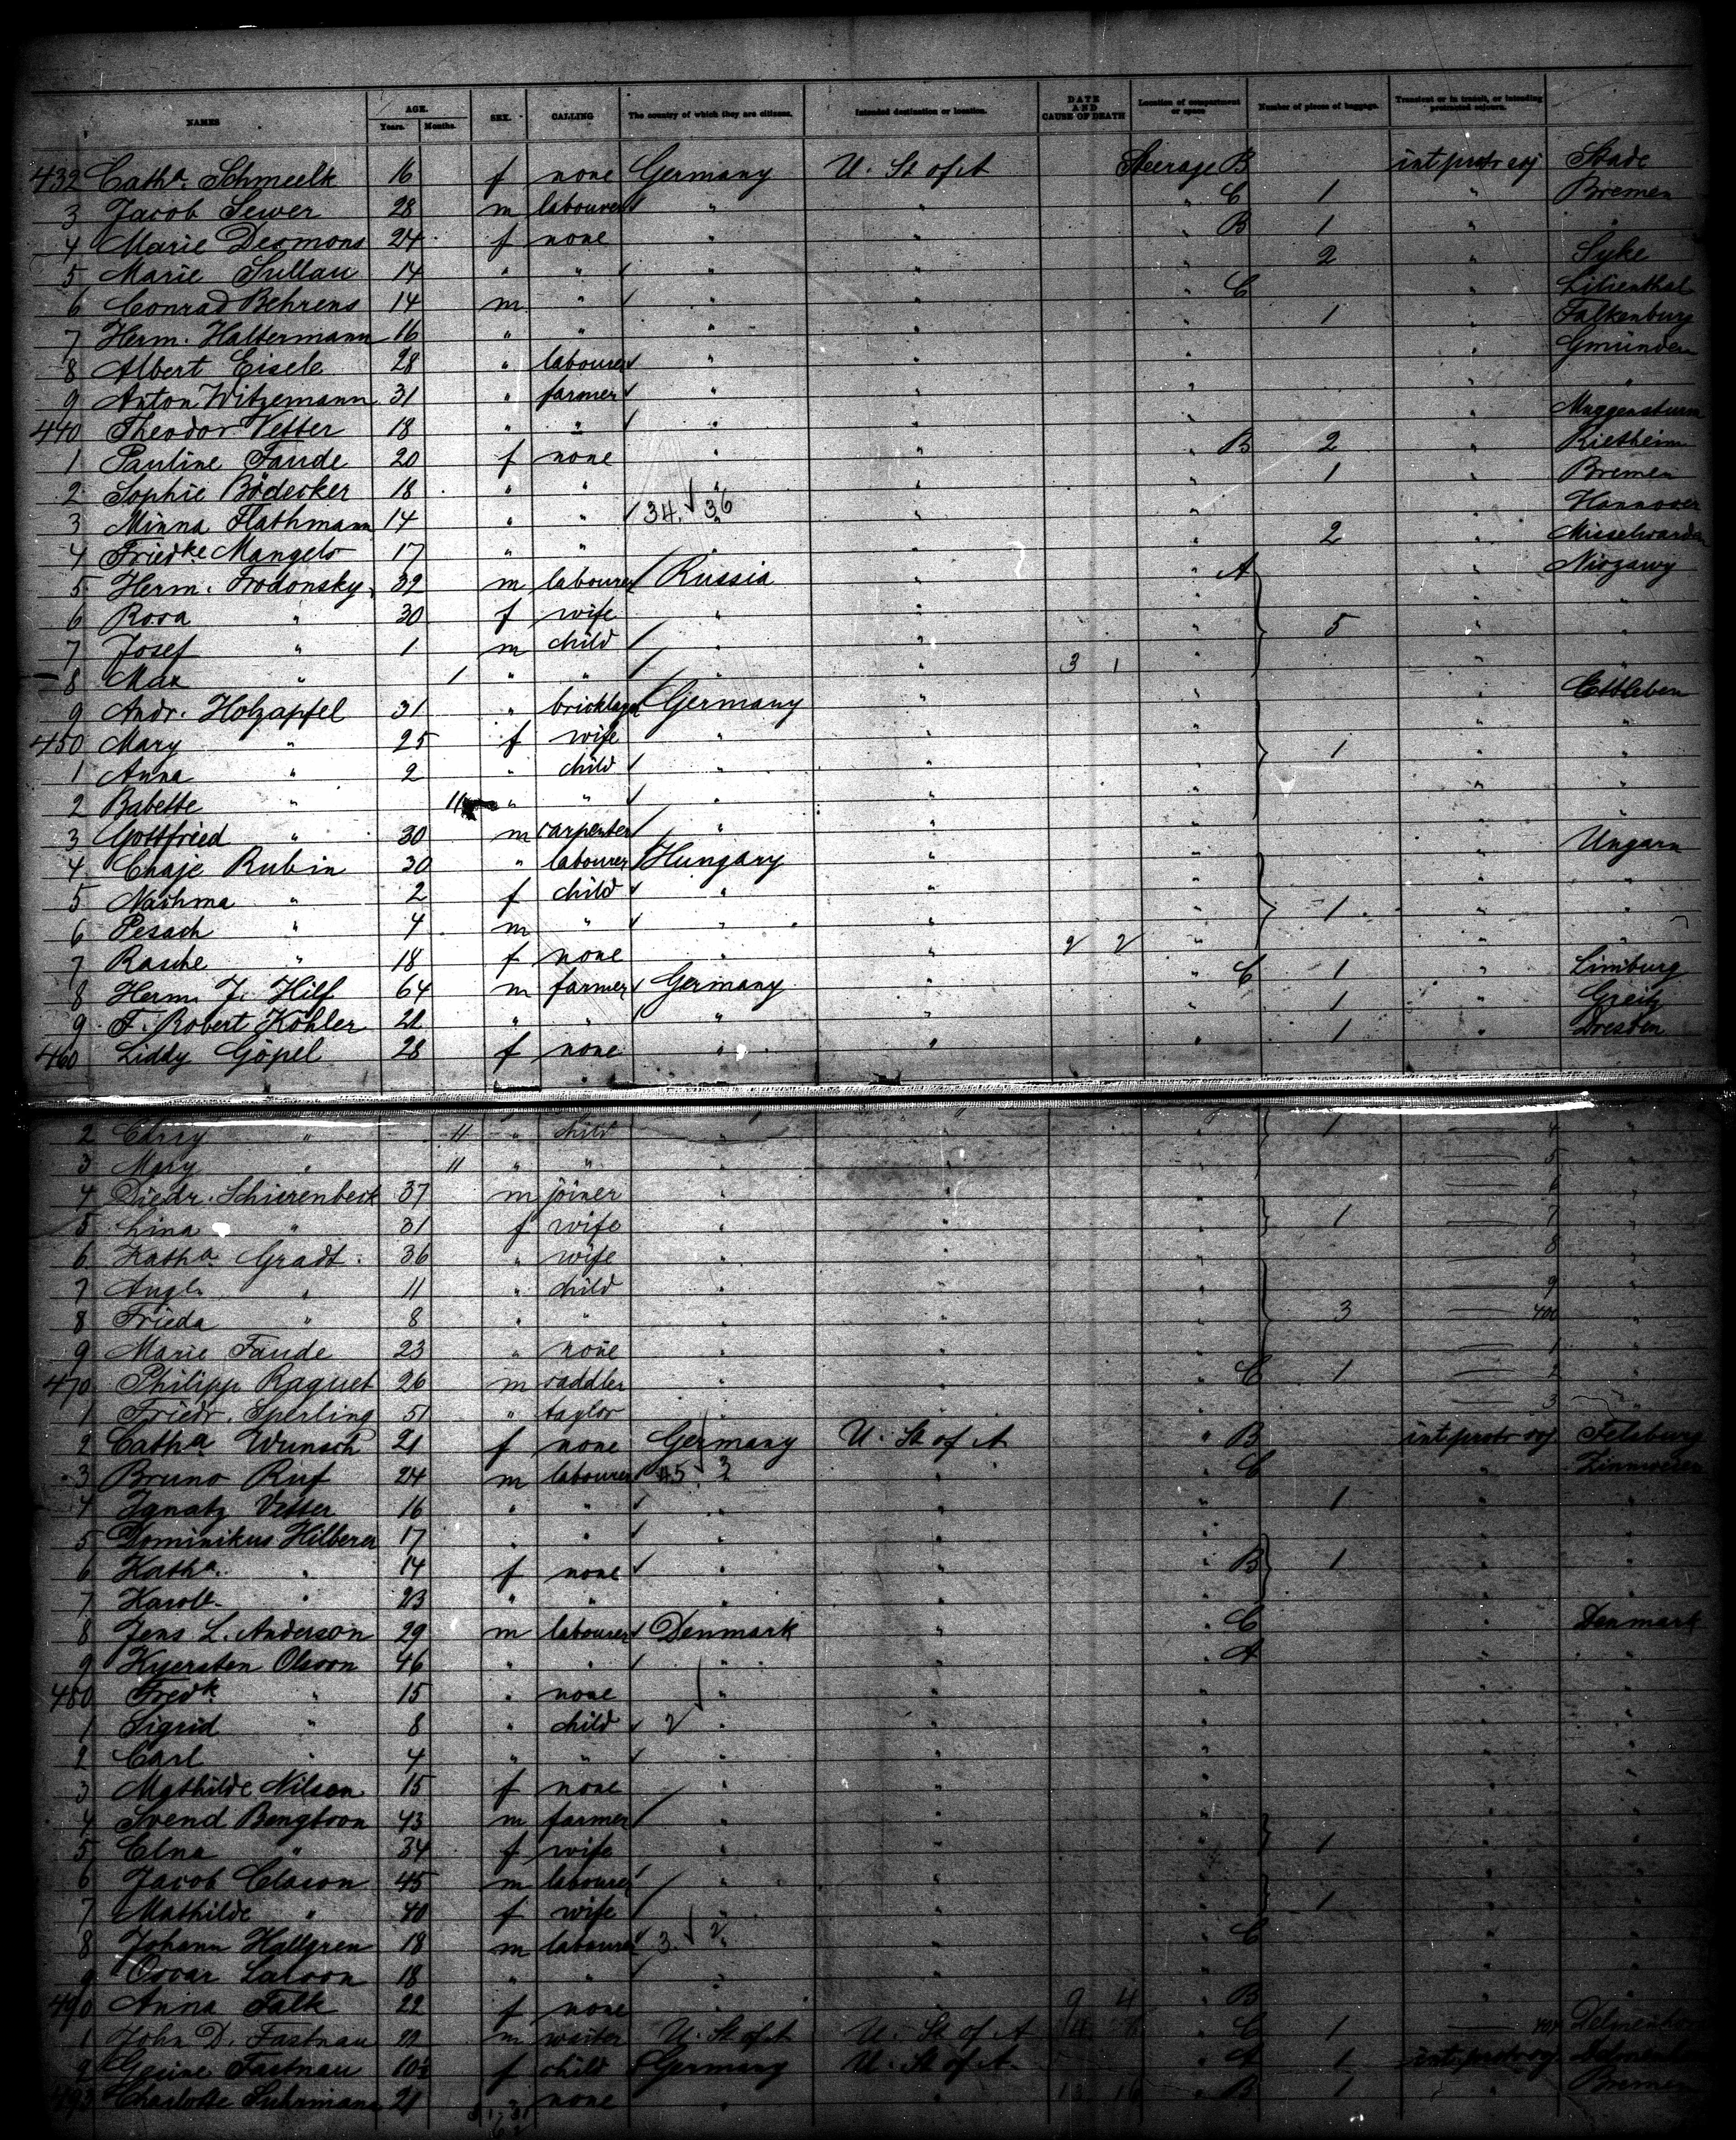 NAMES AGE. Years. Months. SEX. CALLING The country of which they are citizens. Intended destination or location. DATE AND CAUSE OF DEATH Location of compartment or space Number of pieces of baggage. Transient or in transit, or intending protracted sojourn.
432 Catha. Schmeelk 16 f none Germany U. St of A Steerage B int protr soj Stade
3 Jacob Sewer 28 m labourer " " " C 1 " Bremen
4 Marie Desmons 24 f none " " " B 1 " "
5 Marie Sullau 14 " " " " " 2 " Syke
6 Conrad Behrens 14 m " " " " C " Lilienthal
7 Herm. Haltermann 16 " " " " " 1 " Falkenburg
8 Albert Eisele 28 " labourer " " " " Gmünden
9 Anton Witzemann 31 " farmer " " " " "
440 Theodor Vetter 18 " " " " " " Muggensturm
1 Pauline Faude 20 f none " " " B 2 " Rietheim
2 Sophie Bödecker 18 " " " " " 1 " Bremen
3 Minna Flathmann 14 " " 34. 36 " " " Hannover
4 Friedke. Mangels 17 " " " " " 2 " Misselwarden
5 Herm. Frodonsky 32 m labourer Russia " " A " Niozawy
6 Rosa " 30 f wife " " " 5 " "
7 Josef " 1 m child " " " " "
8 Max " 1 " " " " 3 1 " " "
9 Andr. Holzapfel 31 " bricklayer Germany " " " Ettleben
450 Mary " 25 f wife " " " 1 " "
1 Anna " 2 " child " " " " "
2 Babette " 11 " " " " " " "
3 Gottfried " 30 m carpenter " " " " "
4 Chaje Rubin 30 " labourer Hungary " " " Ungarn
5 Nachma " 2 f child " " " 1 " "
6 Pesach " 4 m " " " " " "
7 Rasche " 18 f none " " 2 2 " " "
8 Herm. J. Hilf 64 m farmer Germany " " C 1 " Limburg
9 F. Robert Köhler 22 " " " " " 1 " Greiz
460 Liddy Göpel 28 f none " " " 1 " Dresden
2 Carry " 11 " child " " " 1 4 "
3 Mary " 11 " " " " " 5 "
4 Diedr. Schierenbeck 37 m joiner " " " 6 "
5 Lina " 31 f wife " " " 1 7 "
6 Katha. Gradt 36 " wife " " " 8 "
7 Augl. " 11 " child " " " 9 "
8 Frieda " 8 " " " " " 3 400 "
9 Marie Faude 23 " none " " " 1 "
470 Philipp Raquet 26 m saddler " " " C 1 2 "
1 Friedr. Sperling 51 " taylor " " " 3 "
2 Catha Wunsch 21 f none Germany U. St of A " B int protr soj Felsburg
3 Bruno Ruf 24 m labourer 45 3 " " C " Zimmern
4 Ignatz Vetter 16 " " " " " 1 " "
5 Dominikus Hilberer 17 " " " " " " "
6 Katha. " 14 f none " " " B 1 " "
7 Karole. " 23 " " " " " " "
8 Jens L. Anderson 29 m labourer Denmark " " C " Denmark
9 Kyersten Olsson 46 " " " " " A " "
480 Fredk. " 15 " none " " " " "
1 Sigrid " 8 " child 2 " " " " "
2 Carl " 4 " " " " " " "
3 Mathilde Nilson 15 f none " " " " "
4 Svend Bengtson 43 m farmer " " " " "
5 Elna " 34 f wife " " " 1 " "
6 Jacob Clason 45 m labourer " " " " "
7 Mathilde " 40 f wife " " " 1 " "
8 Johann Hallgren 18 m labourer 3. 2 " " C " "
9 Oscar Larson 18 " " " " " " "
490 Anna Falk 22 f none " " 9 4 " B " "
1 John D. Fastnau 22 m waiter U. St of A U. St of A " C 1 404 Delmenhorst
2 Gesine Fastnau 10½ f child Germany U. St of A " A 1 int protr soj Delmenhorst
493 Charlotte Suhrmann 21 " none " " 13 16 " B 1 " Bremen